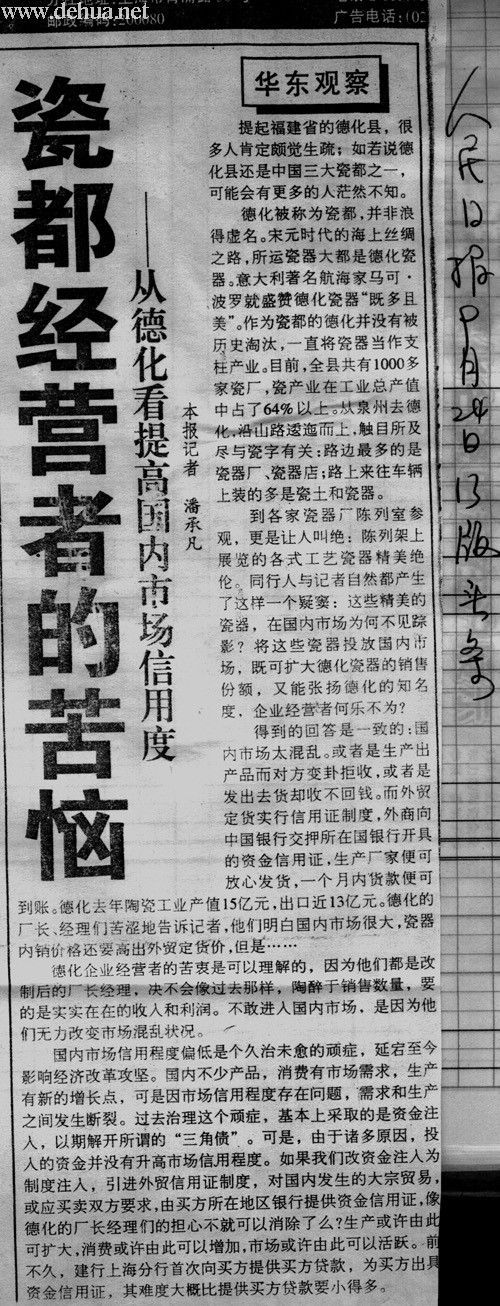 www.dehua.net
邮政编码:200080
广告电话:(02
华东观察
瓷都经营者的苦恼
——从德化看提高国内市场信用度
本报记者 潘承凡
提起福建省的德化县，很
多人肯定颇觉生疏；如若说德
化县还是中国三大瓷都之一，
可能会有更多的人茫然不知。
德化被称为瓷都，并非浪
得虚名。宋元时代的海上丝绸
之路，所运瓷器大都是德化瓷
器。意大利著名航海家马可·
波罗就盛赞德化瓷器“既多且
美”。作为瓷都的德化并没有被
历史淘汰，一直将瓷器当作支
柱产业。目前，全县共有1000多
家瓷厂，瓷产业在工业总产值
中占了64%以上。从泉州去德
化，沿山路逶迤而上，触目所及
尽与瓷字有关：路边最多的是
瓷器厂、瓷器店；路上来往车辆
上装的多是瓷土和瓷器。
到各家瓷器厂陈列室参
观，更是让人叫绝：陈列架上
展览的各式工艺瓷器精美绝
伦。同行人与记者自然都产生
了这样一个疑窦：这些精美的
瓷器，在国内市场为何不见踪
影？将这些瓷器投放国内市
场，既可扩大德化瓷器的销售
份额，又能张扬德化的知名
度，企业经营者何乐不为？
得到的回答是一致的：国
内市场太混乱。或者是生产出
产品而对方变卦拒收，或者是
发出去货却收不回钱。而外贸
定货实行信用证制度，外商向
中国银行交押所在国银行开具
的资金信用证，生产厂家便可
放心发货，一个月内货款便可
到账。德化去年陶瓷工业产值15亿元，出口近13亿元。德化的
厂长、经理们苦涩地告诉记者，他们明白国内市场很大，瓷器
内销价格还要高出外贸定货价，但是……
德化企业经营者的苦衷是可以理解的，因为他们都是改
制后的厂长经理，决不会像过去那样，陶醉于销售数量，要
的是实实在在的收入和利润。不敢进入国内市场，是因为他
们无力改变市场混乱状况。
国内市场信用程度偏低是个久治未愈的顽症，延宕至今
影响经济改革攻坚。国内不少产品，消费有市场需求，生产
有新的增长点，可是因市场信用程度存在问题，需求和生产
之间发生断裂。过去治理这个顽症，基本上采取的是资金注
入，以期解开所谓的“三角债”。可是，由于诸多原因，投
入的资金并没有升高市场信用程度。如果我们改资金注入为
制度注入，引进外贸信用证制度，对国内发生的大宗贸易，
或应买卖双方要求，由买方所在地区银行提供资金信用证，像
德化的厂长经理们的担心不就可以消除了么？生产或许由此
可扩大，消费或许由此可以增加，市场或许由此可以活跃。前
不久，建行上海分行首次向买方提供买方贷款，为买方出具
资金信用证，其难度大概比提供买方贷款要小得多。
人民日报9月24日13版头条